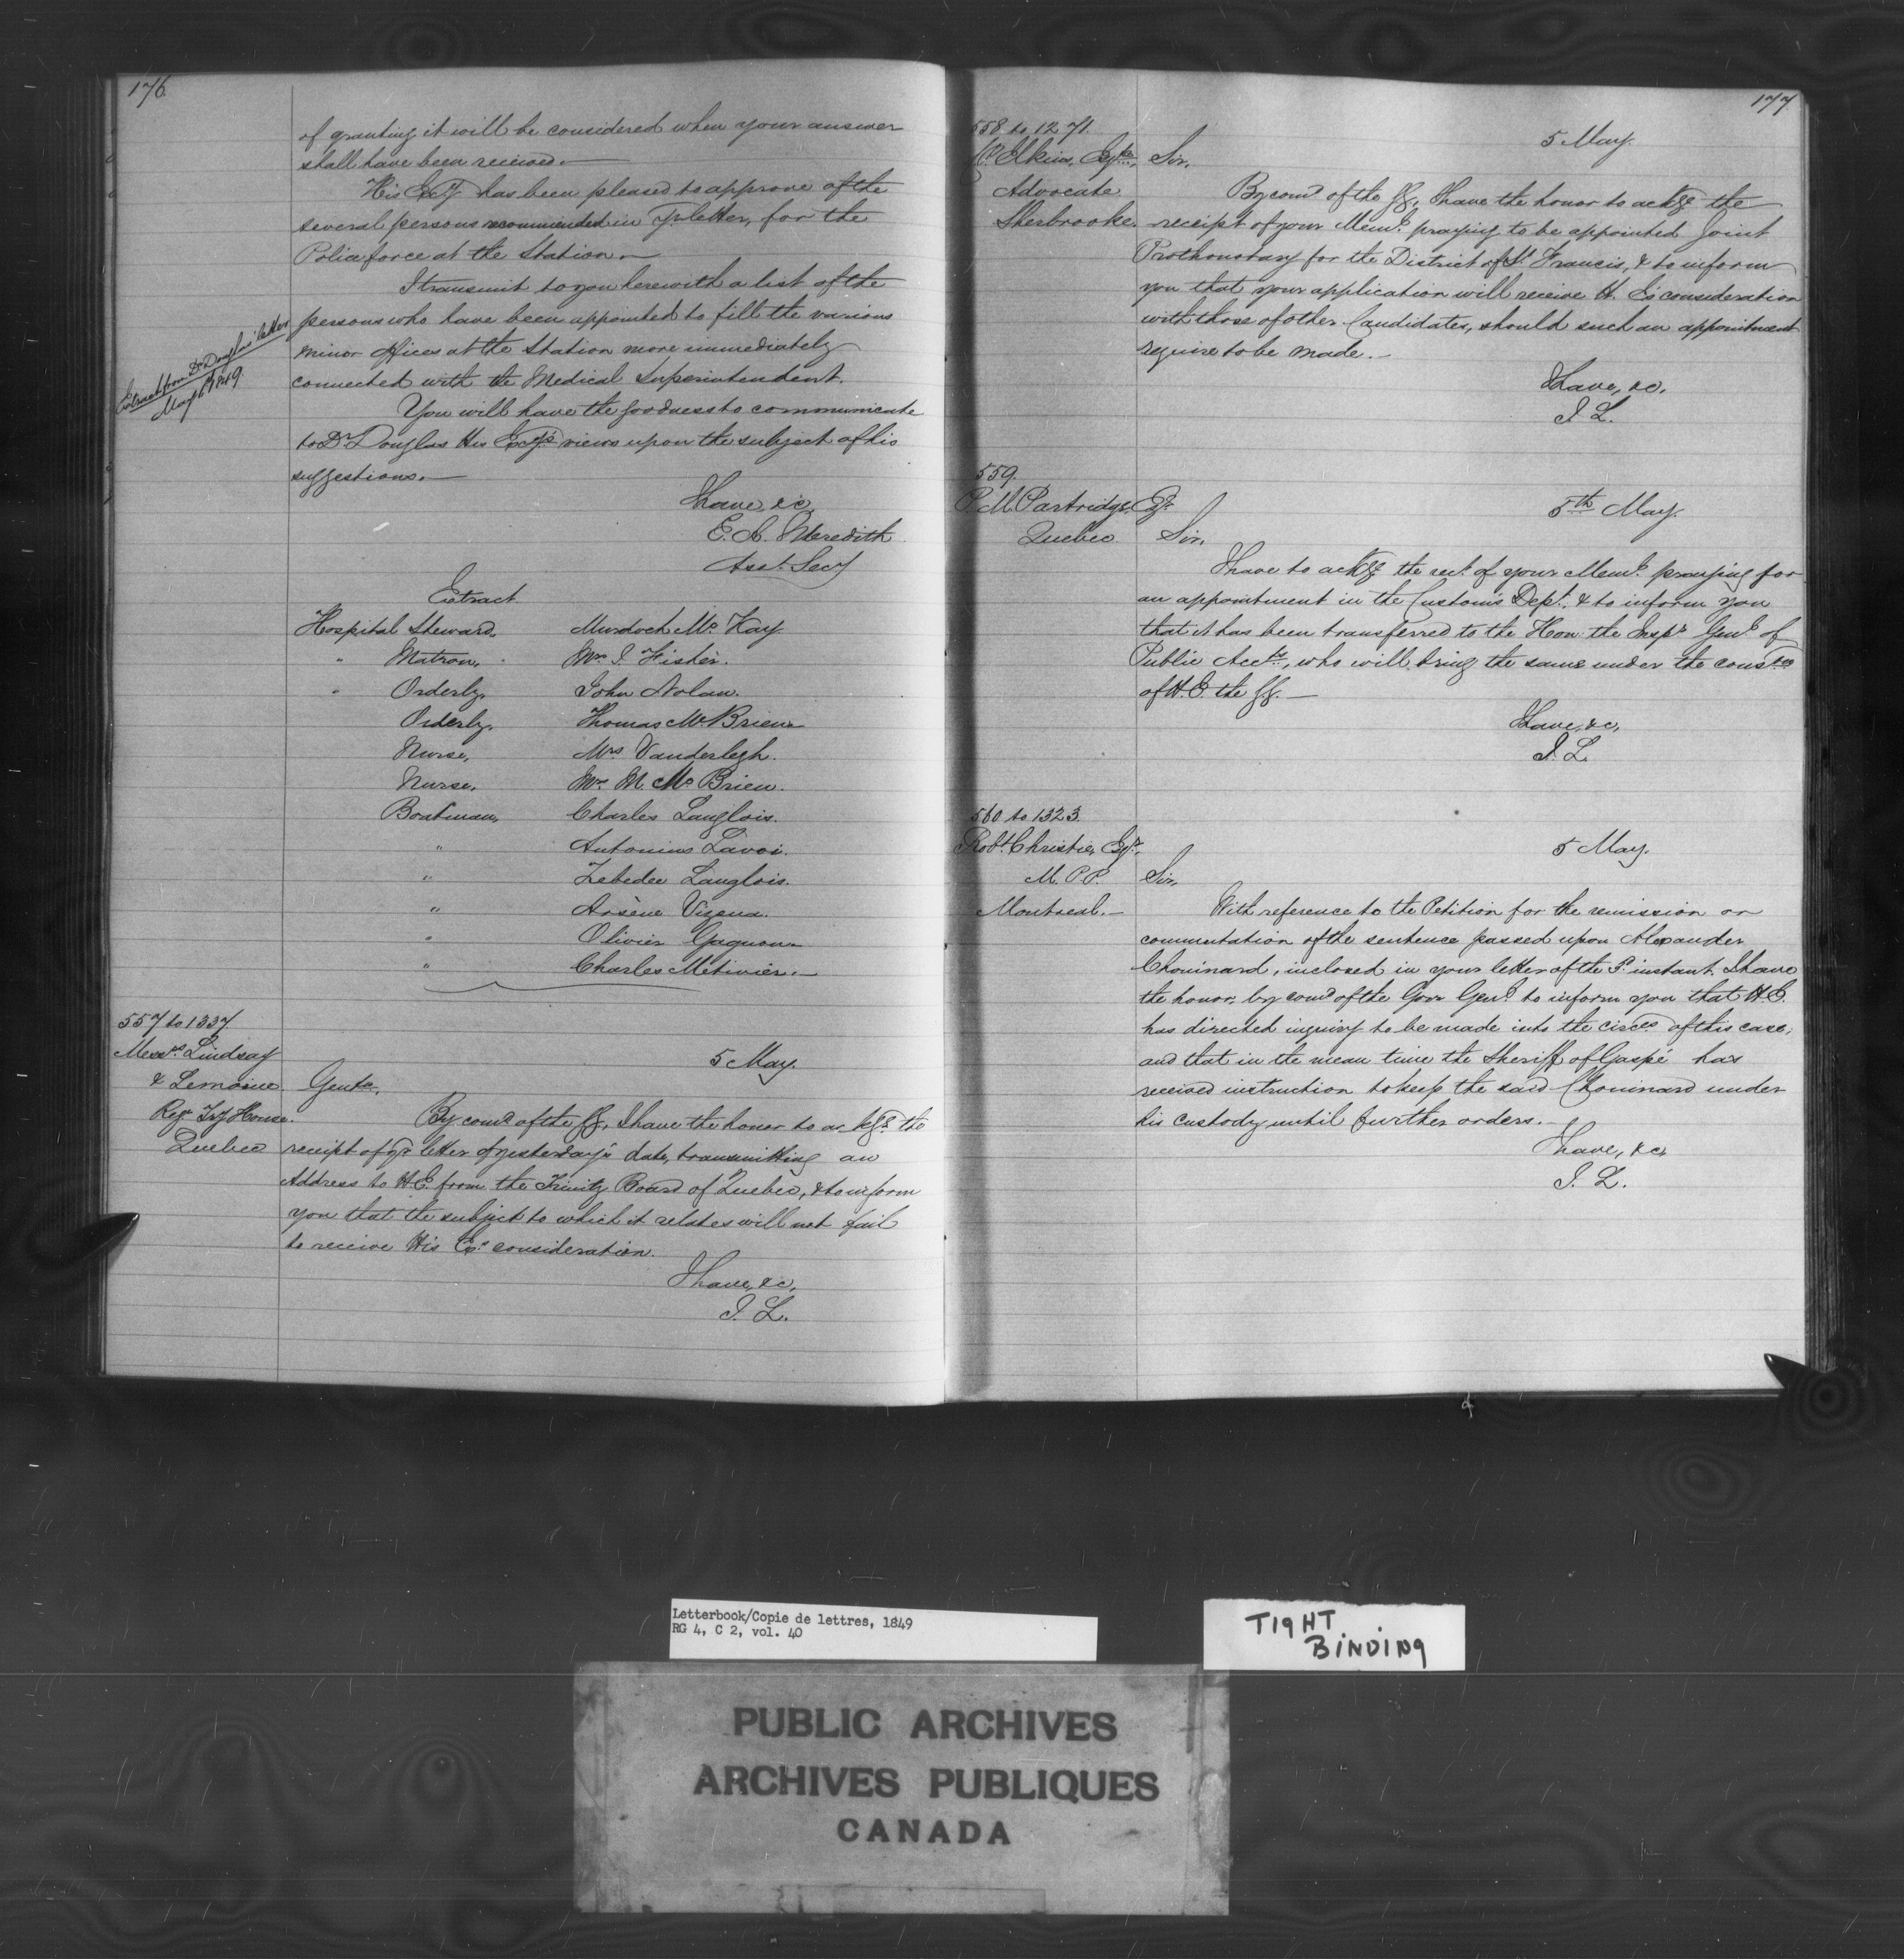 176.
of granting it will be considered when your answer
shall have been received.—
His Excy has been pleased to approve of the
several persons recommended in Yr letter, for the
Police force at the Station.—
I transmit to you herewith a list of the
persons who have been appointed to fill the various
minor offices at the Station more immediately
connected with the Medical Superintendent.
Extract from Dr Douglas' letter
May 1849
You will have the goodness to communicate
to Dr Douglas His Excy's views upon the subject of his
suggestions.—
I have, &c
E. A. Meredith
Asst. Secy
Extract
Hospital Steward, Murdoch Mc Kay.
" Matron, Mrs I. Fisher.
" Orderly, John Nolan.
Orderly, Thomas McBrien
Nurse, Mrs Vanderlegh.
Nurse, Mrs M. Mc Brien.
Boatman, Charles Langlois.
" Antonius Lavoi.
" Zebedee Langlois.
" Arsène Vizena.
" Olivier Gagnon
" Charles Métivier.—
557 to 1337
Messrs Lindsay
& Lemoine
Regr Try House.
Quebec
5 May.
Gentn,
By comd of the GG, I have the honor to ackge the
receipt of yr letter of yesterday's date, transmitting an
Address to H.E. from the Trinity Board of Quebec, & to inform
you that the subject to which it relates will not fail
to receive His Ex's consideration.
I have, &c,
J. L.
177.
558 to 1271.
Elkins, Esqre,
Advocate
Sherbrooke.
5 May.
Sir,
By comd of the GG, I have the honor to ackge the
receipt of your Meml praying to be appointed Joint
Prothonotary for the District of St Francis, & to inform
you that your application will receive H. E's consideration
with those of other Candidates, should such an appointment
require to be made.—
I have, &c,
J. L.
559.
P. M. Partridge, Esqr
Quebec
5th May.
Sir,
I have to ackge the rect of your Meml praying for
an appointment in the Customs Dept, & to inform you
that it has been transferred to the Hon. the Inspr Genl of
Public Accts, who will bring the same under the conson
of H.E. the GG.—
I have, &c,
J. L.
560 to 1323.
Robt Christie, Esqr,
M.P.P.
Montreal.—
5 May.
Sir,
With reference to the Petition for the remission or
commutation of the sentence passed upon Alexander
Chouinard, inclosed in your letter of the instant. I have
the honor, by comd of the Govr Genl to inform you that H.E.
has directed inquiry to be made into the circes of this case;
and that in the mean time the Sheriff of Gaspé has
received instruction to keep the said Chouinard under
his custody until further orders.—
I have, &c,
J. L.
Letterbook/Copie de lettres, 1849
RG 4, C 2, vol. 40
TIGHT
BINDING
PUBLIC ARCHIVES
ARCHIVES PUBLIQUES
CANADA